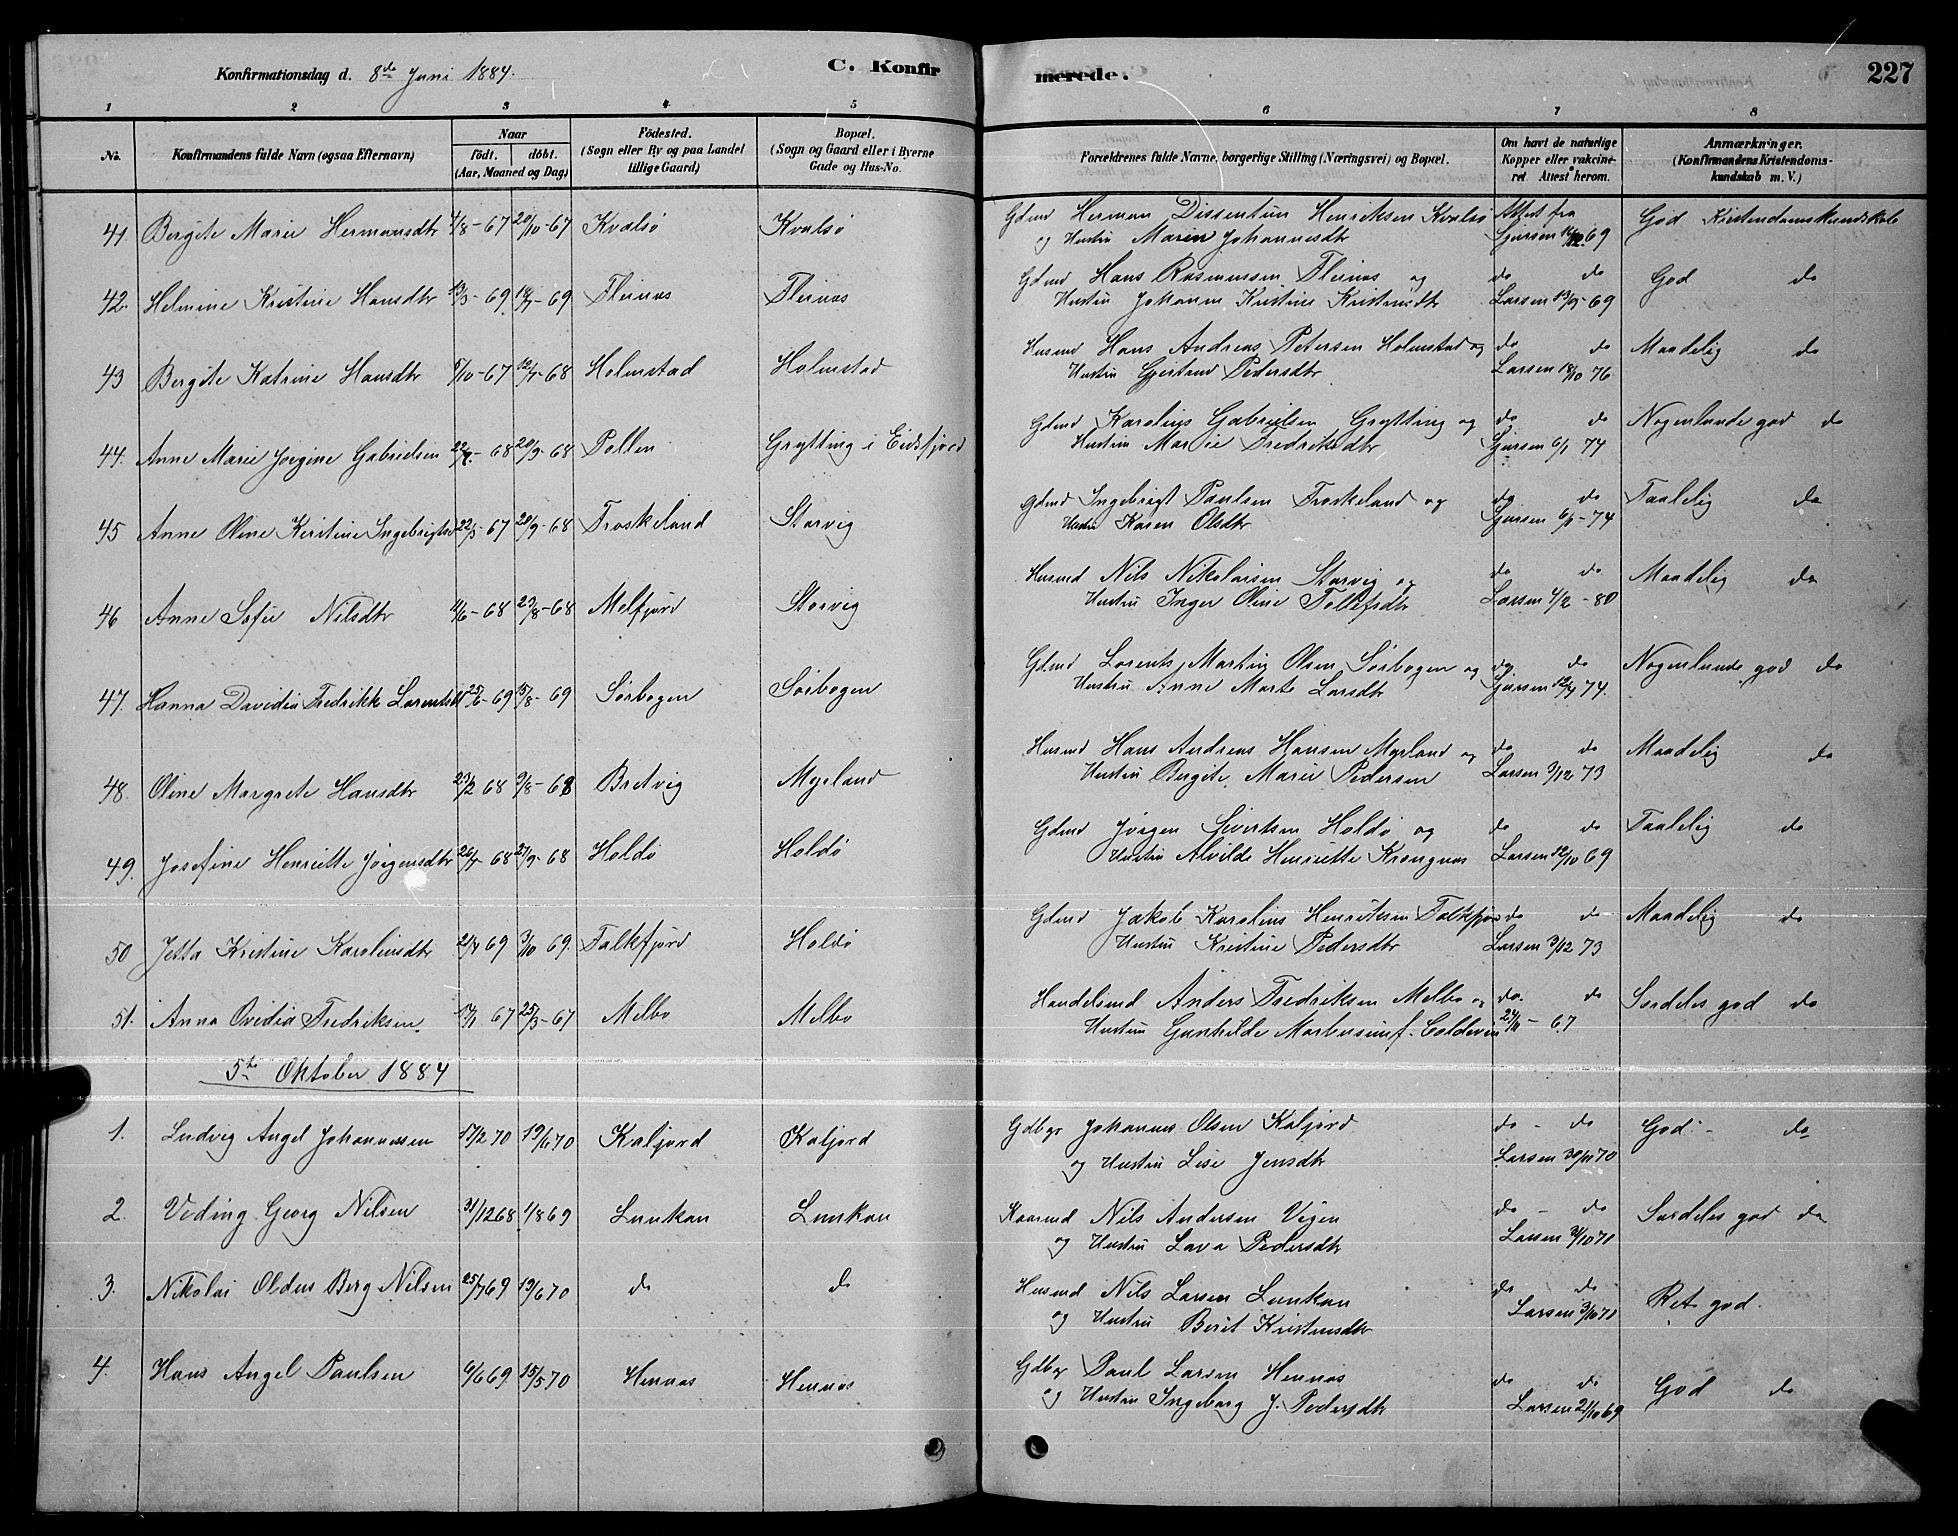 Konfirmationsdag d. 8de Juni 1884.
C. Konfirmerede.
227
1 2 3 4 5 6 7 8
No.
Konfirmandens fulde Navn (ogsaa Efternavn)
Naar
födt. döbt.
(Aar, Maaned og Dag)
Födested.
(Sogn eller By og paa Landet
tillige Gaard)
Bopæl.
(Sogn og Gaard eller i Byerne
Gade og Hus-No.
Forældrenes fulde Navne, borgerlige Stilling (Næringsvei) og Bopæl.
Om havt de naturlige
Kopper eller vakcine-
ret. Attest herom.
Anmærkninger.
(Konfirmandens Kristendoms-
kundskab m. V.)
41. Bergite Marie Hermansdtr 4/8-67 20/10-67 Kvalsø Kvalsø Gdmd Herman Dissentius Henriksen Kvalsø Attest fra God Kristendomskundskab
og Hustru Maren Johannesdtr Sjursen 69
42. Helmine Kristine Hansdtr 13/3-69 18/7-69 Fleinæs Fleinæs Gdmd Hans Rasmussen Fleinæs og do do God do
Hustru Johanna Kristine Kristensdtr Larsen 13/9-69
43 Bergite Katrine Hansdtr 5/10-67 12/7-68 Holmstad Holmstad Husmd Hans Andreas Petersen Holmstad og do do Maadelig do
Hustru Gjertrud Pedersdtr Larsen 18/10 76
44. Anne Marie Jørgine Gabrielsen 68 20/9-68 Pollen Grytting i Eidsfjord Gdmd Karolius Gabrielsen Grytting og do do Nogenlunde god do
Hustru Marie Fredriksdtr Sjursen 6/1 74
45 Anne Oline Kirstine Ingebrigtsd 22/5-67 20/9-68 Froskeland Storvig Gdmd Ingebrigt Paulsen Froskeland og do do Taalelig do
Hustru Karen Olsdtr Sjursen 6/1-74
46 Anne Sofie Nilsdtr 11/6-68 23/8-68 Melfjord Storvig Husmd Nils Nikolaisen Storvig og do do Maadelig do
Hustru Inger Oline Tollefsdtr Larsen 4/2-80
47. Hanna Davidia Fredrikke Lorentsdt 25/6-69 15/8-69 Sørbogen Sørbogen Gdmd Lorents Martin Olsen Sørbogen og do do Nogenlunde god do
Hustru Anne Marte Larsdtr Sjursen 12/4 74.
48. Oline Margrete Hansdtr 23/2 68 9/8-68 Bretvig Myrland Husmd Hans Andreas Hansen Myrland og do do Maadelig do
Hustru Bergite Marie Pedersen Larsen 3/12 73
49. Josefine Henriette Jørgensdtr 26/7 68 27/9-68 Holdø Holdø Gdmd Jørgen Sivertsen Holdø og do do Taalelig do
Hustru Alvilde Henriette Krongnæs Larsen 12/10 69
50 Jetta Kristine Karoliusdtr 2/4 69 3/10 69. Falkfjord Holdø Gdmd Jakob Karolius Henriksen Falkfjor do do Maadelig do
Hustru Kristine Pedersdtr Larsen 3/12 73
51. Anna Ovidia Fredriksen 17/1 67 25/3-67 Melbo Melbo Handelsmd Anders Fredriksen Melbo og do. do Særdeles god do
Hustru Gunhilde f. Coldevin 24/11-67
5te Oktober 1884
1. Ludvig Angel Johannessen 17/2 70 19/6 70 Kaljord Kaljord Gdbgr Johannes Olsen Kaljord do - do God - do
og Hustru Lise Jensdtr Larsen 30/11 70
2. Viding Georg Nilsen 31/12 68 1/8 69 Lunkan Lunkan Kaarmd Nils Andersen Vigen do - do Særdeles god do
og Hustru Lava Pedersdtr Larsen 3/10 71
3. Nikolai Olders Berg Nilsen 25/7 69 19/6 70 do do Husmd Nils Larsen Lunkan do do Ret god.
og Hustru Berit Kristensdtr Larsen 3/10 71
4. Hans Angel Paulsen 6/6 69. 15/5 70 Hennæs Hennæs Gdbgr Paul Larsen Hennæs do do God do
og Hustru Ingeborg J. Pedersdtr Larsen 21/10 69